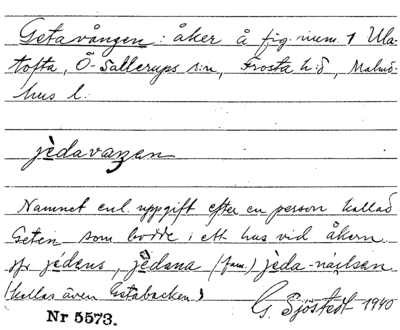 Getavången: åker å fig. num. 1 Ula-
tofta, Ö. Sallerups s:n, Frosta h:d, Malmö-
hus l.
jèdavaŋen
Namnet enl. uppgift efter en person kallad
Geten som bodde i ett hus vid åkern.
jfr jédans, jèdana (fam.) jèda-náelsan
(kallas även Getabacken)
G. Sjöstedt 1940
Nr 5573.